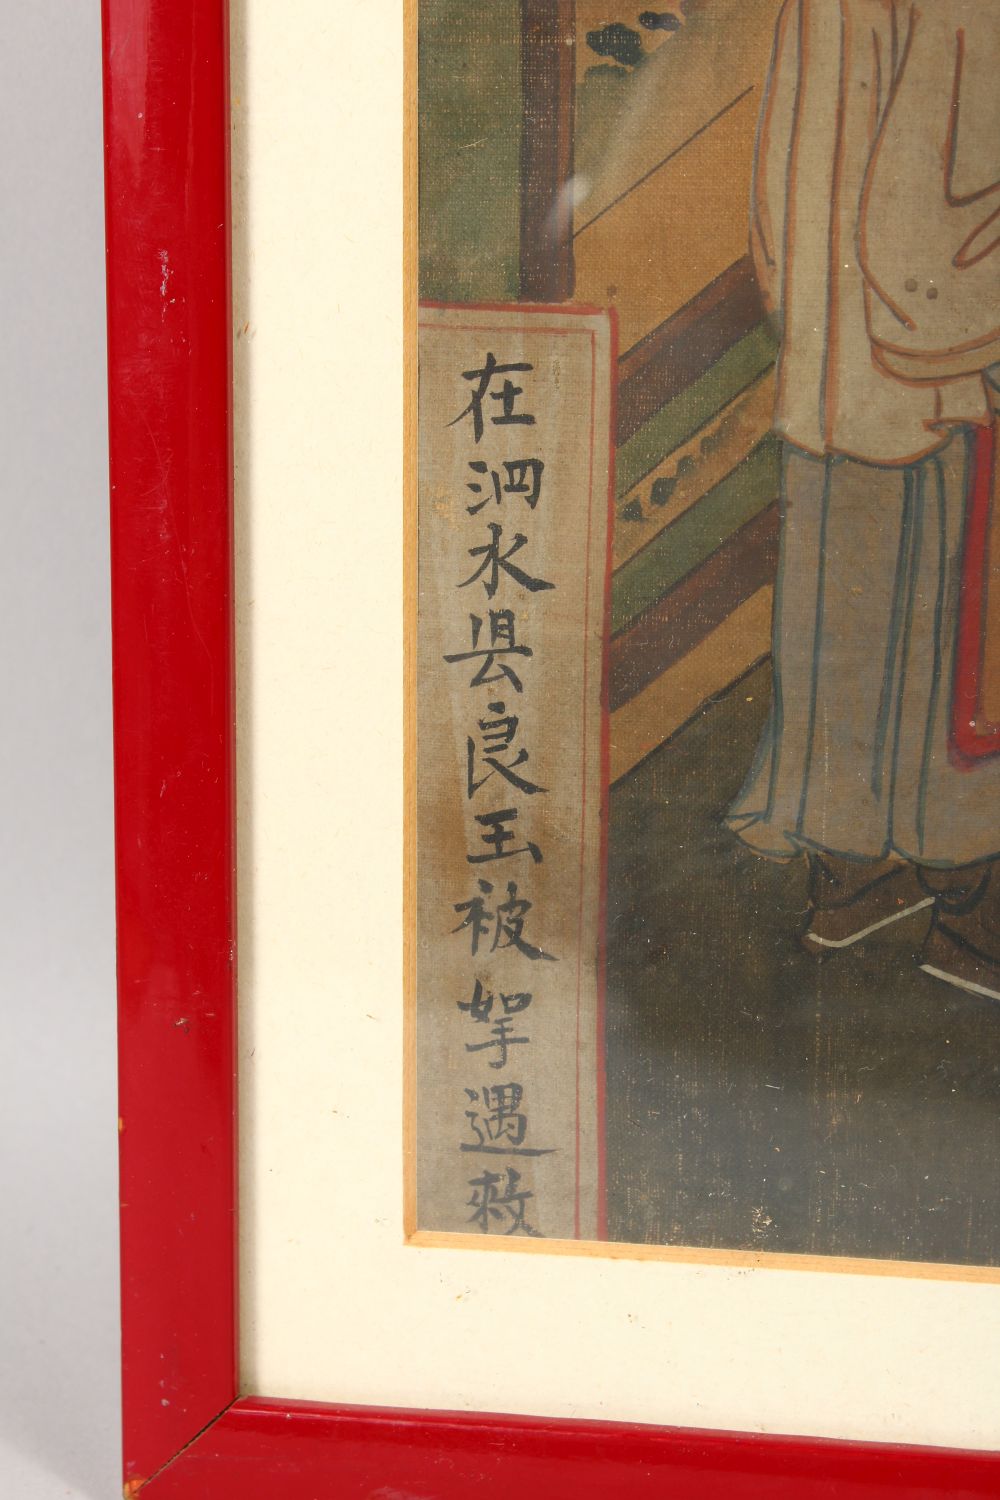 在泗水县良玉被拏遇救